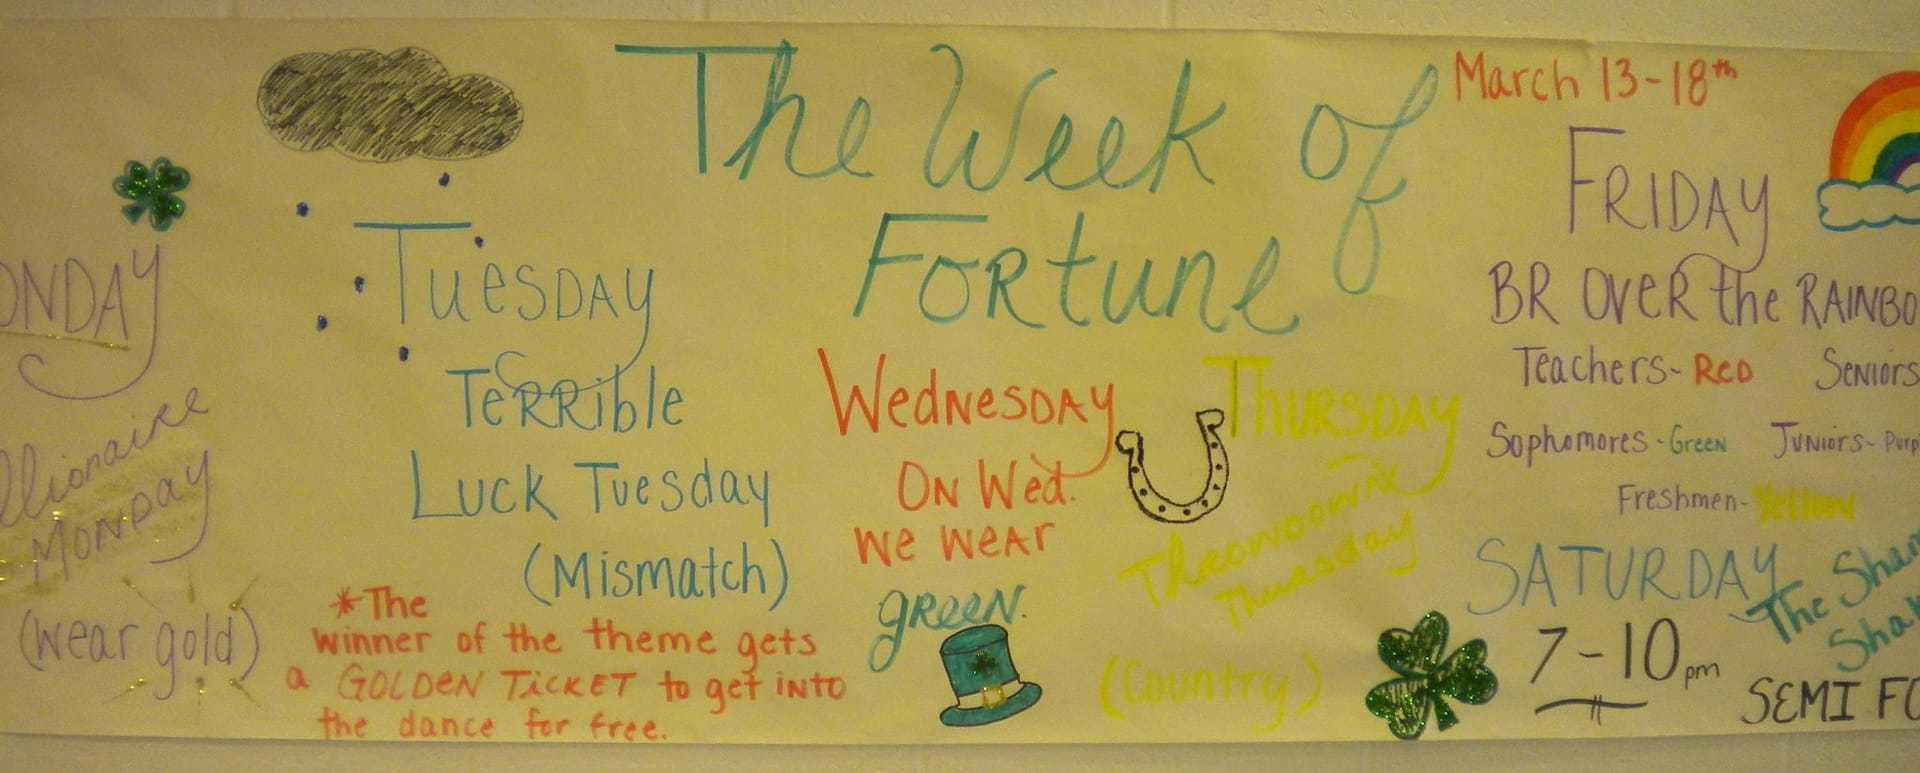 The Week of
Fortune
March 13-18th
ONDAY
llionaire
Monday
(wear gold)
Tuesday
Terrible
Luck Tuesday
(Mismatch)
*The
winner of the theme gets
a GOLDEN TICKET to get into
the dance for free.
Wednesday
On Wed.
we wear
green.
Thursday
Throwdown
Thursday
(Country)
FRIDAY
BR OVER the RAINBO
Teachers- Red Seniors
Sophomores - Green Juniors - Purp
Freshmen - Yellow
SATURDAY
7-10pm
The Sham
Sha
SEMI FO